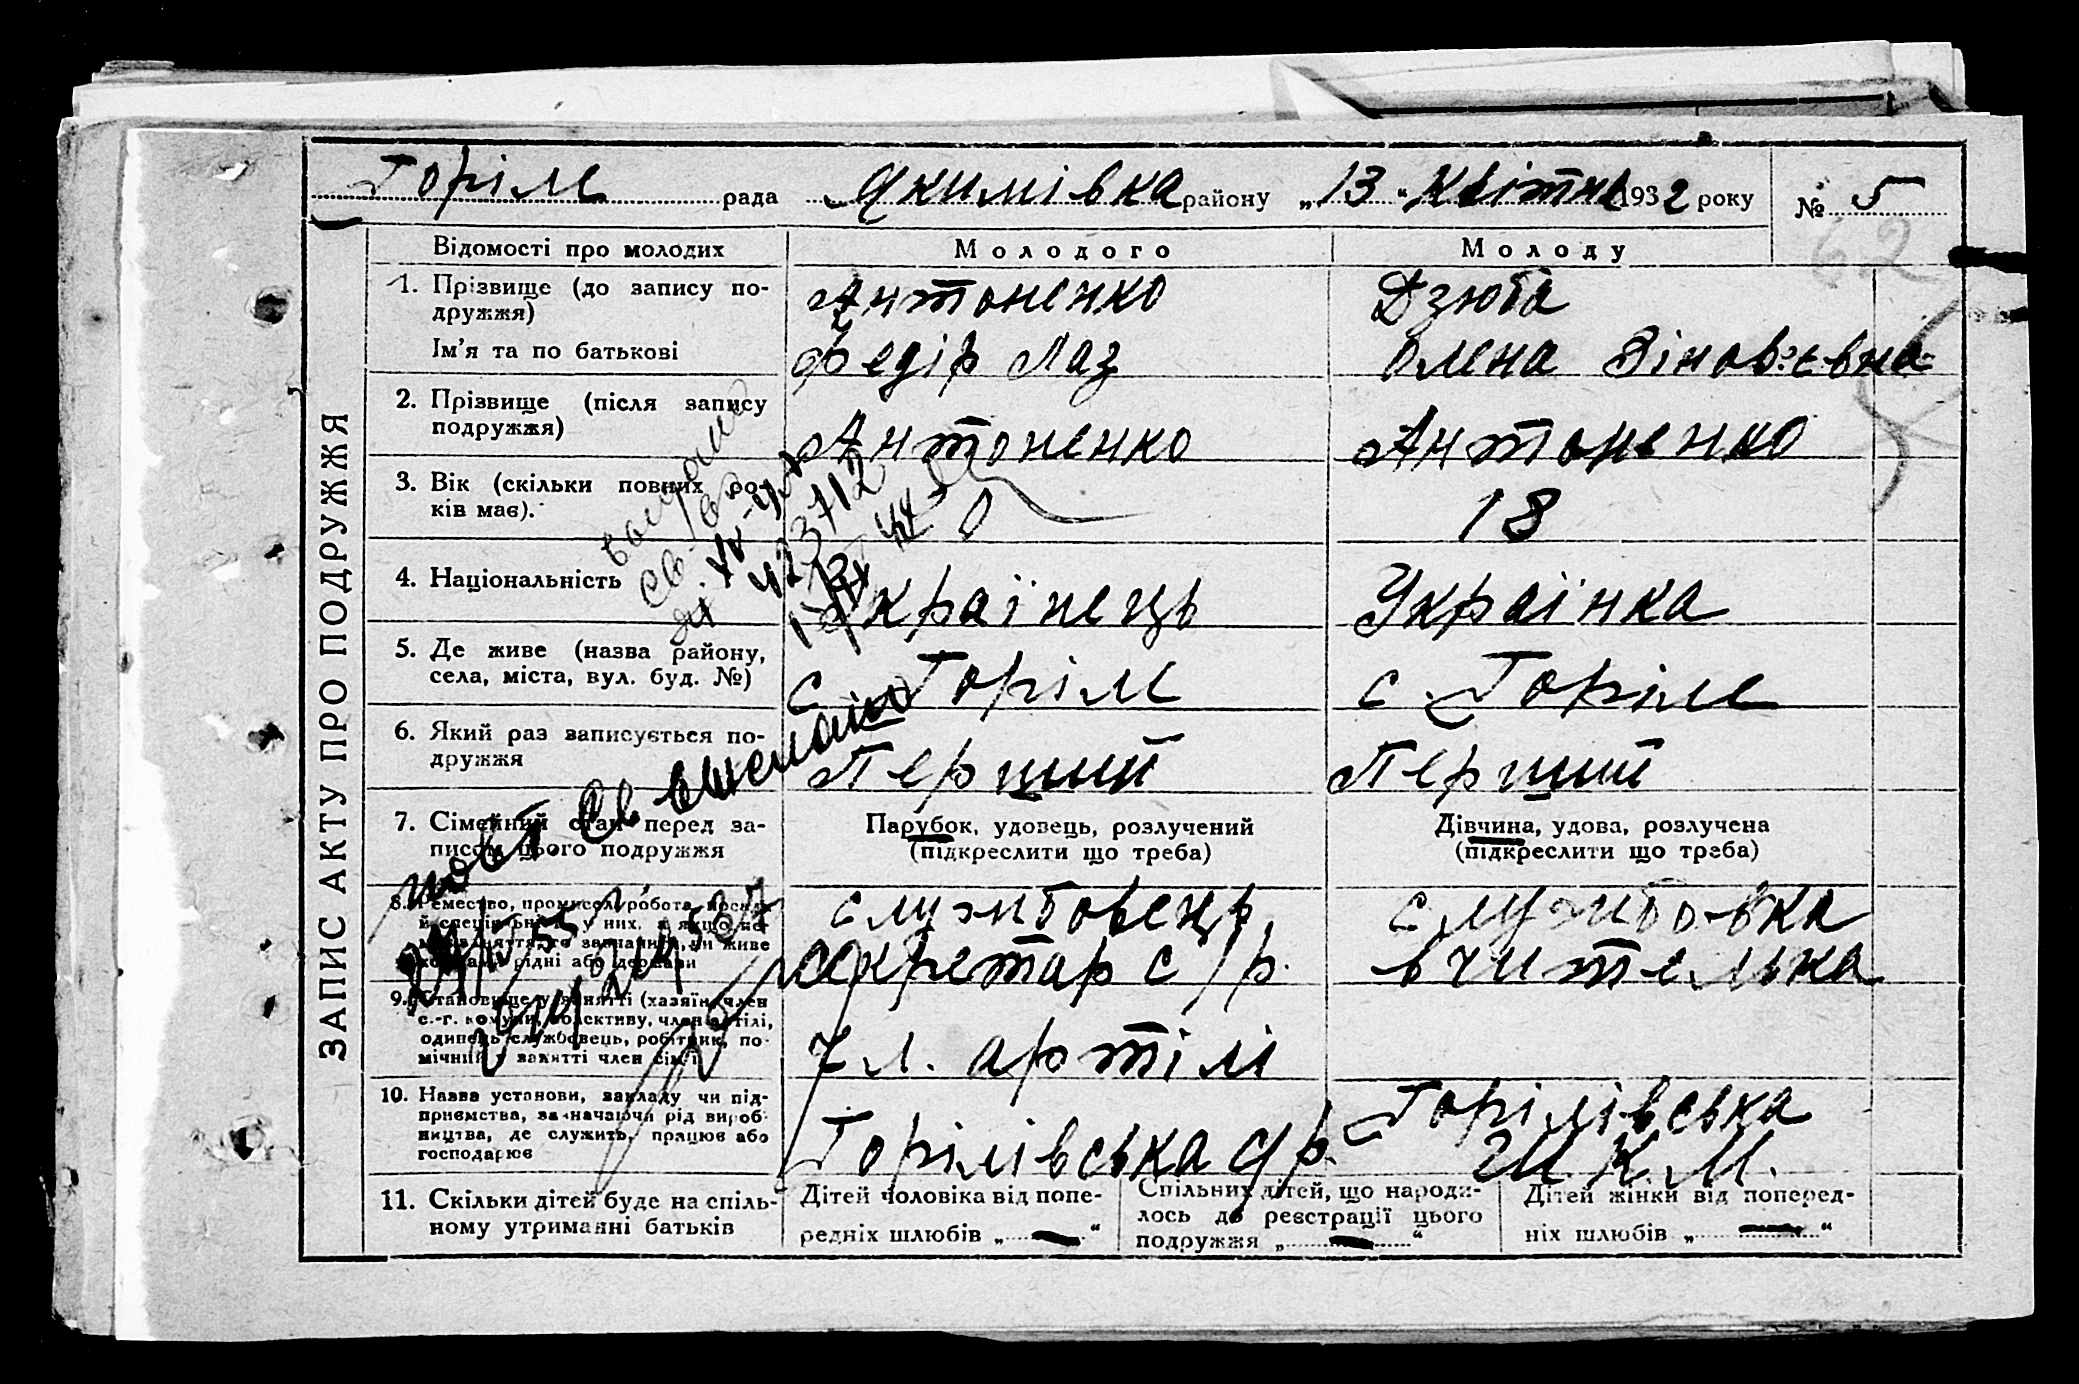 Горіле рада Якимівка району „13" Квітня 1932 року № 5
62
ЗАПИС АКТУ ПРО ПОДРУЖЖЯ
Відомості про молодих Молодого Молоду
1. Прізвище (до запису по-
дружжя) Антоненко Дзюба
Ім'я та по батькові Федір Лаз Олена Зінов:євна
2. Прізвище (після запису
подружжя) Антоненко Антоненко
3. Вік (скільки повних ро-
ків має). 20 18
4. Національність Українець Українка
5. Де живе (назва району,
села, міста, вул. буд. №) с Горіле с. Горіле
6. Який раз записується по-
дружжя Перший Перший
7. Сімейний стан перед за-
писом цього подружжя
Парубок, удовець, розлучений
(підкреслити що треба)
Дівчина, удова, розлучена
(підкреслити що треба)
8. Ремество, промисел, робота
рідні або держави
службовець,
секретар с/р.
службовка
вчителька
9. Становище у занятті (хазяїн, член
с.-г. комуни, колективу, член артілі,
одинець службовець, робітник, по-
мічний у занятті член сім'ї
чл. артілі
10. Назва установи, закладу чи під-
приємства, зазначаючи рід вироб-
ництва, де служить, працює або
господарює
Горілівська с/р.
Горілівська
Ш.К.М.
11. Скільки дітей буде на спіль-
ному утриманні батьків
Дітей чоловіка від попе-
редніх шлюбів „ — "
Спільних дітей, що народи-
лось до реєстрації цього
подружжя „ — "
Дітей жінки від поперед-
ніх шлюбів „ — "
423712